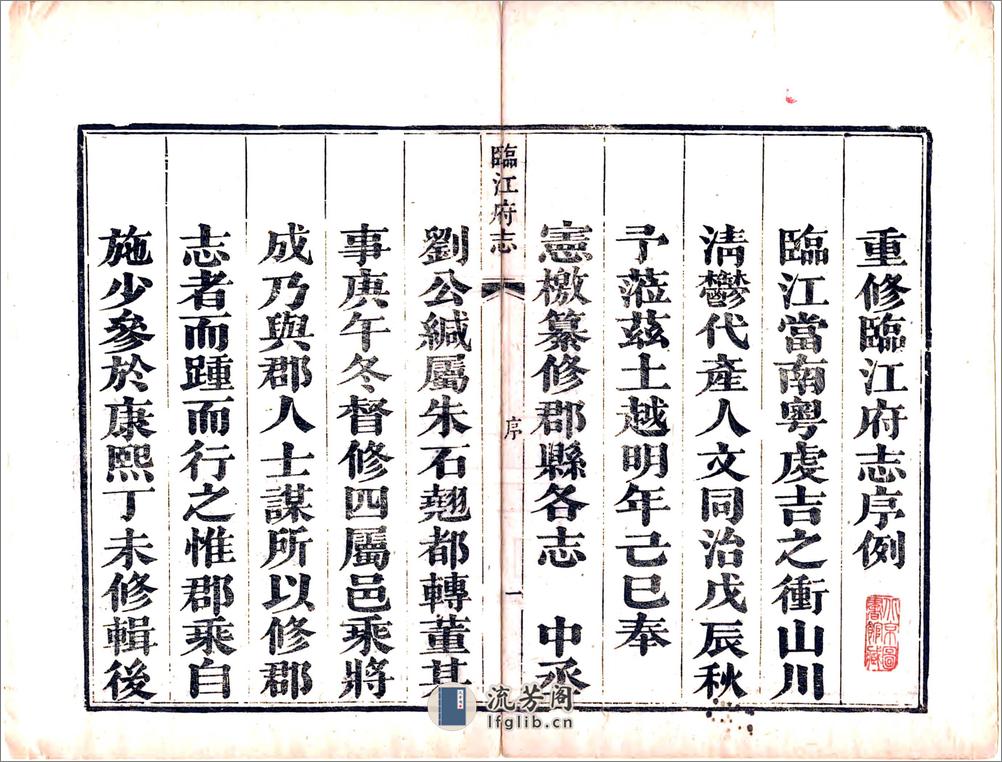 重修臨江府志序例
臨江當南粵虔吉之衝山川
清鬱代產人文同治戊辰秋
予蒞兹土越明年己巳奉
憲檄纂修郡縣各志 中丞
臨江府志
序
一
劉公緘屬朱石翹都轉董其
事庚午冬督修四屬邑乘將
成乃與郡人士謀所以修郡
志者而踵而行之惟郡乘自
施少參於康熙丁未修輯後
流芳阁
lfglib.cn